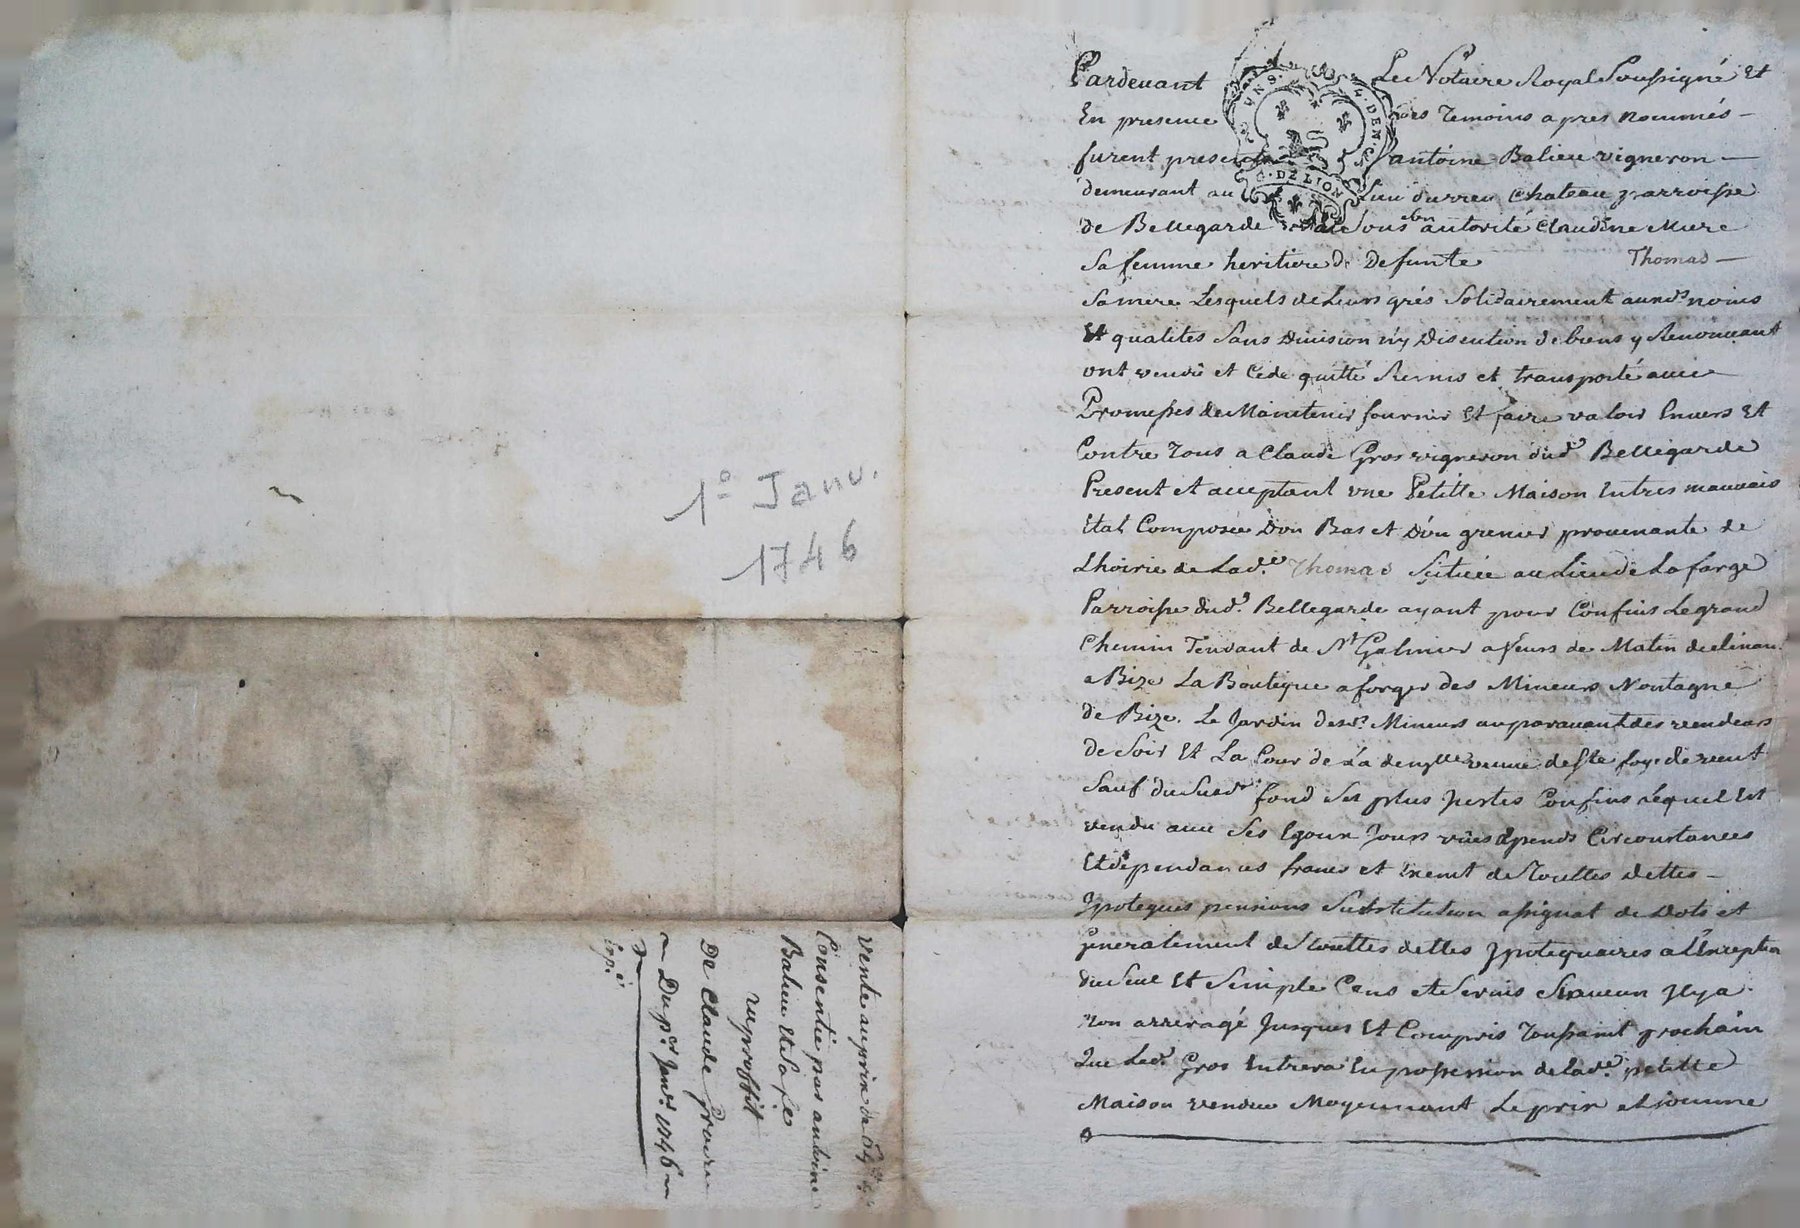 1º Janv.
1746
Vente au prix de
Consentie par antoine
Balieu et sa fe
au proffit
De Claude Gros
Du per Janvr 1746
Exp.
GEN. DE LION
Pardevant Le Nótaire Royal Soussigné Et
En presence des Temoins apres nommés
furent presents antoine Balieu vigneron
demeurant au Lieu du vieu Chateau parroisse
de Bellegarde et de Sous son autorité Claudine Mure
Sa femme heritiere de Defunte Thomas
Sa mere Lesquels de Leurs grés Solidairement auxds noms
Et qualites Sans Division ny Discution de biens y Renonceant
ont vendu et Cedé quitté Remis et transporté avec
Promesses de Maintenir fournir Et faire valoir Envers Et
Contre Tous a Claude Gros vigneron dud. Bellegarde
Present et acceptant une Petitte Maison En tres mauvais
Etat Composée D'un Bas et D'un grenier provenante de
Lhoirie de Lade. Thomas Scituée au Lieu de La farge
Parroisse dud. Bellegarde ayant pour Confins Le grand
Chemin Tendant de St Galmier a feurs de Matin declinant
a Bize La Boutique a forger des Mineurs Montagne
de Bize. Le Jardin desd. Mineurs auparavant des vendeurs
de Soir Et La Cour de La demlle veuve de Ste foy de vent
Sauf du Susd. fond Ses plus Justes Confins Lequel Est
vendu avec Ses Egoux Jours vües apends Circonstances
Et dependances francs et Exemt de Touttes dettes
Ypoteques pensions Substitution assignat de Dots et
Generalement de Touttes dettes Ypotequaires a l'Exception
du Seul Et Simple Cens et Servis Si aucun Il y a
non arreragé Jusques Et Compris Toussaint prochain
Que Led. Gros Entrera En possession de Lade. petitte
Maison vendue Moyennant Le prix et somme